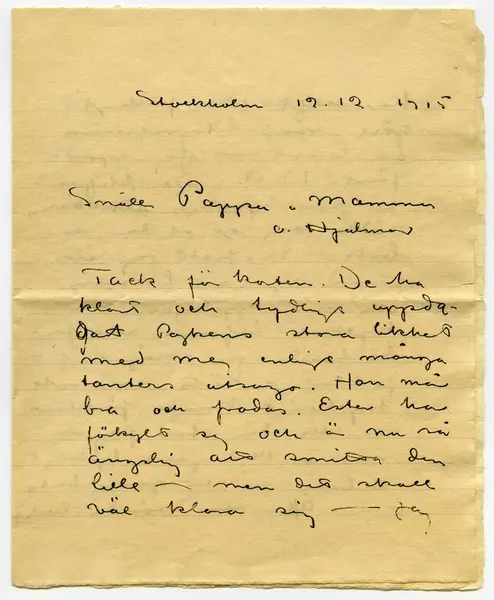 Stockholm 12.12 1915
Snälla Pappa, Mamma
o. Hjalmar
Tack för korten. De ha
klart och tydligt uppda-
gat Pojkens stora likhet
med mej enligt många
tanters utsago. Han mår
bra och frodas. Ester har
förkylt sig och är nu så
ängslig att smitta den
lille — men det skall
väl klara sig — Jag